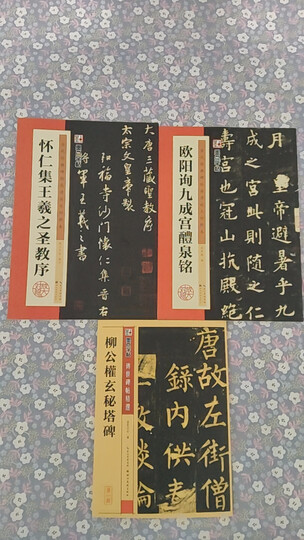 怀仁集王羲之圣教序
大唐三藏聖教序
太宗文皇帝製
弘福寺沙門懷仁集晉右
將軍王羲之書
欧阳询九成宫醴泉铭
月皇帝避暑乎九
成之宫此則随之仁
壽宫也冠山抗殿絶
柳公權玄秘塔碑
唐故左街僧
録内供奉
三教談論